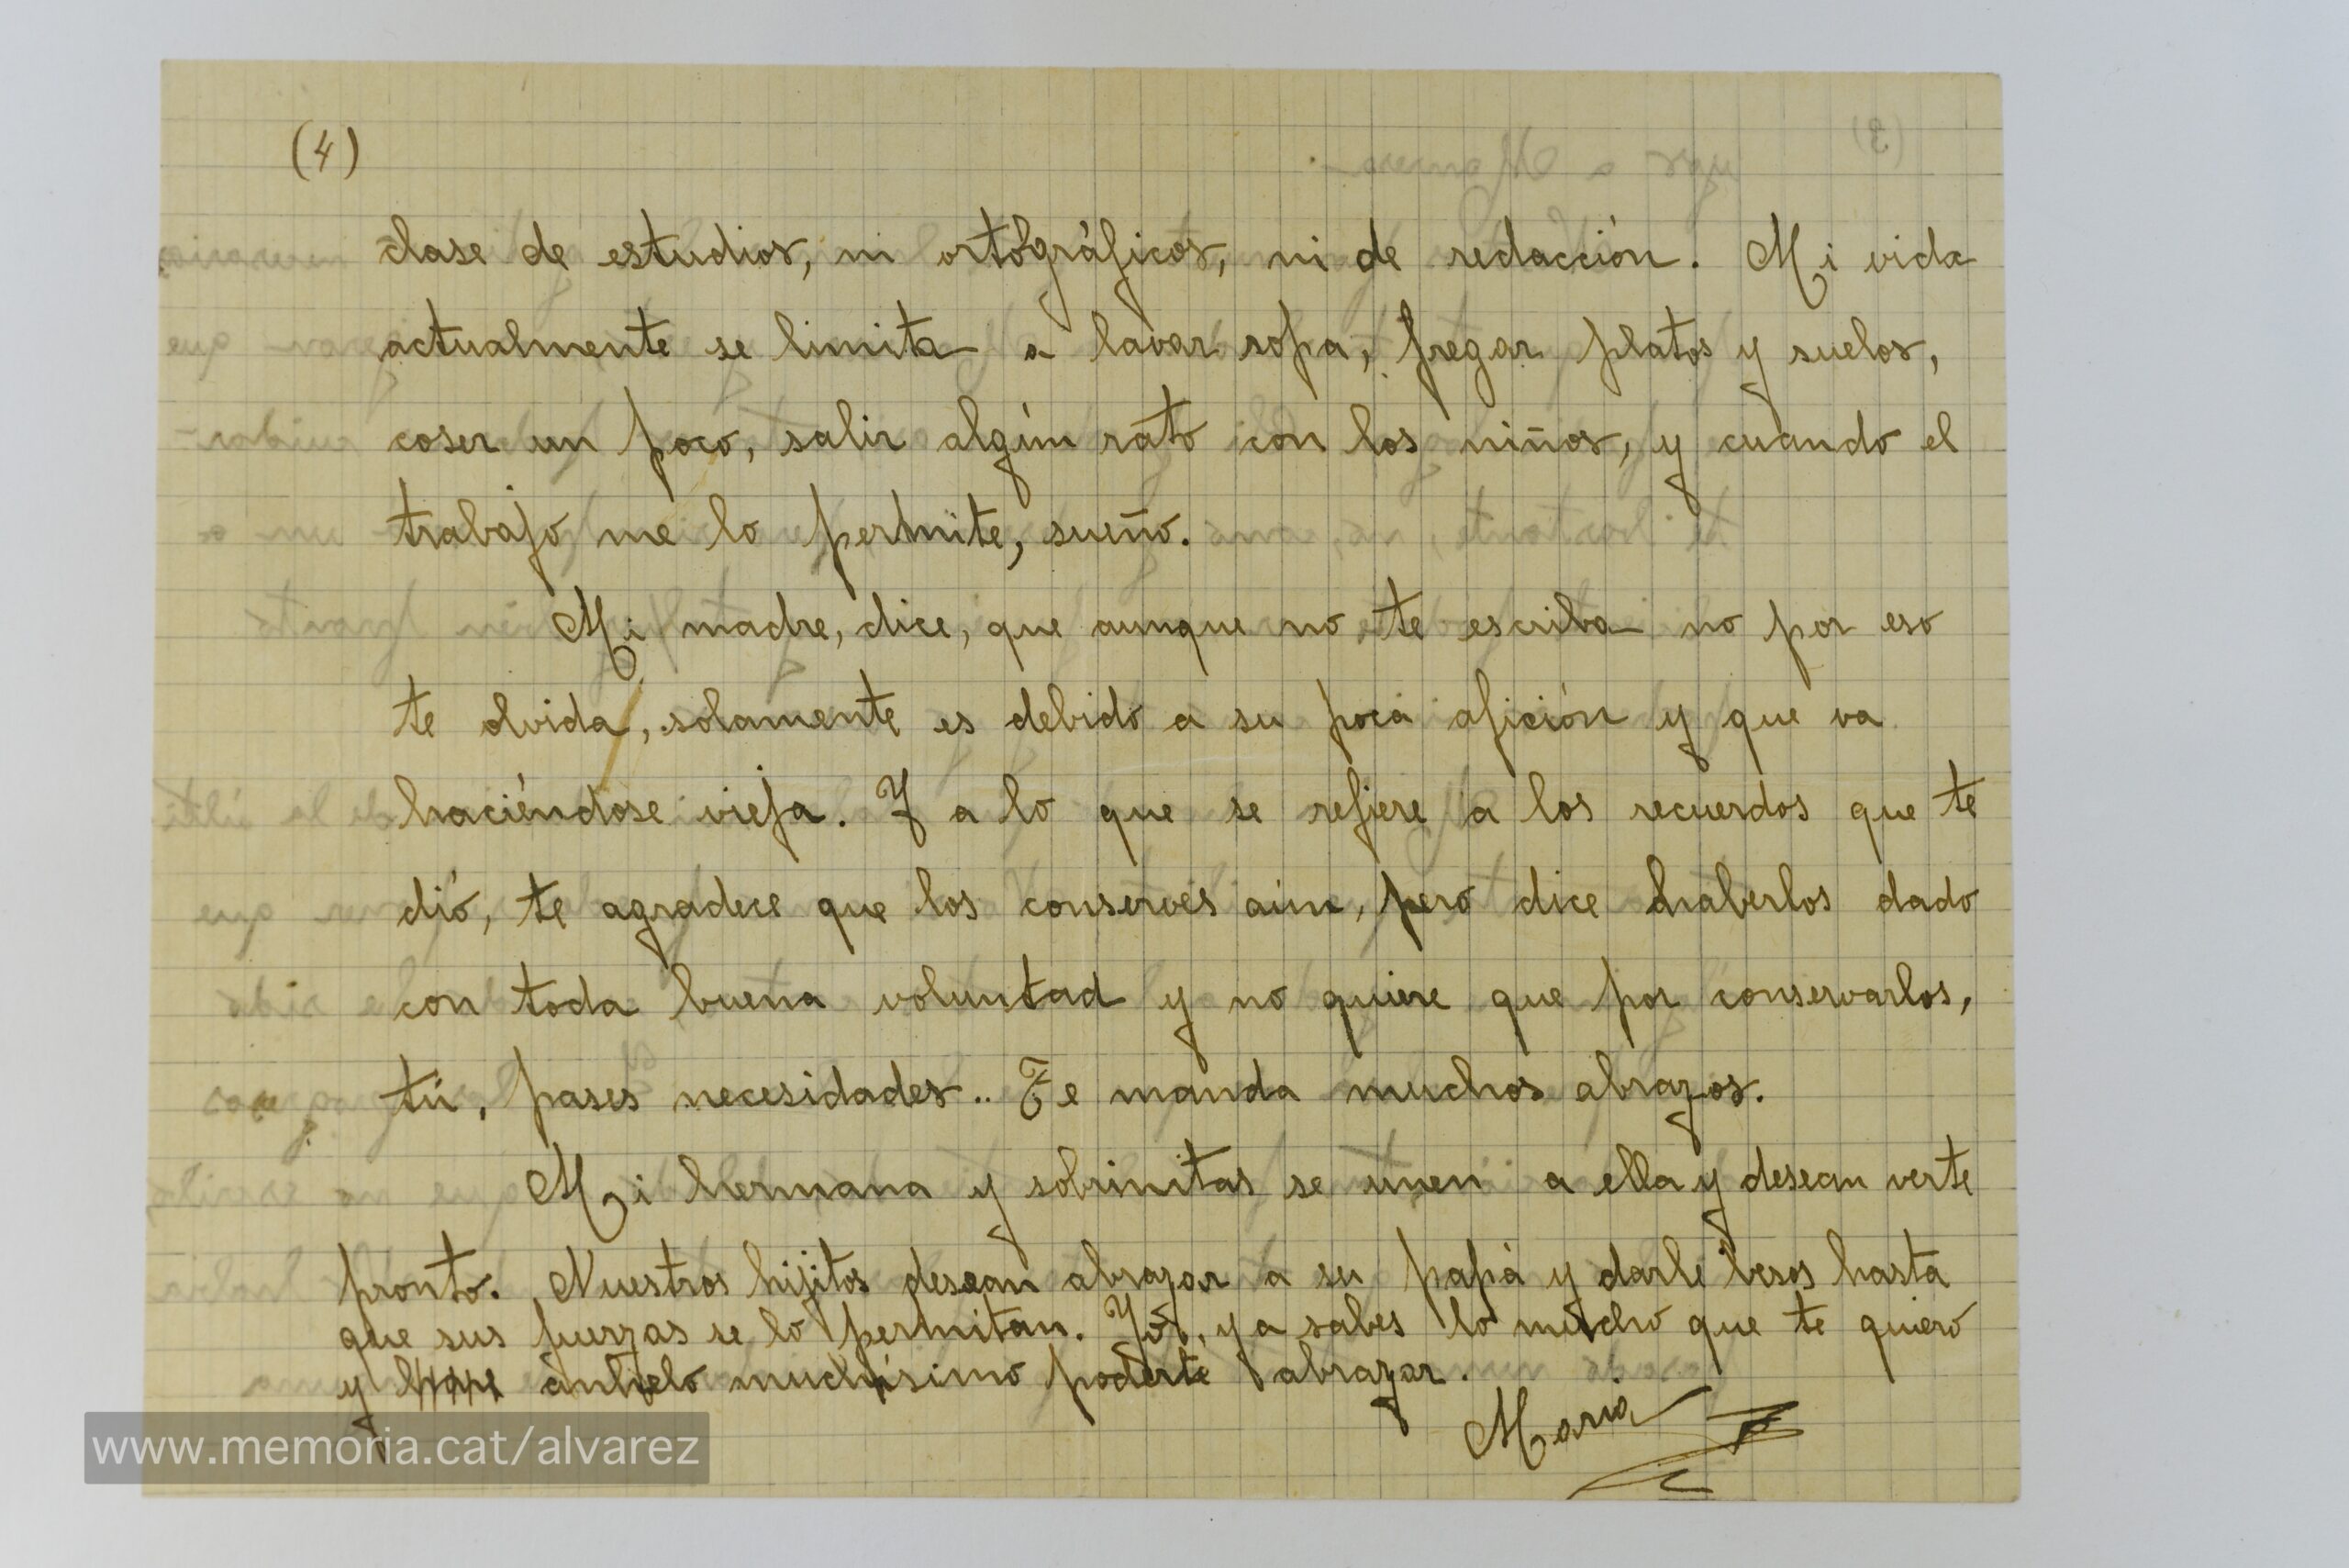 (4)
clase de estudios, ni ortográficos, ni de redacción. Mi vida
actualmente se limita a lavar ropa, fregar platos y suelos,
coser un poco, salir algún rato con los niños, y cuando el
trabajo me lo permite, sueño.
Mi madre, dice, que aunque no te escriba no por eso
te olvida, solamente es debido a su poca afición y que va
haciéndose vieja. Y a lo que se refiere a los recuerdos que te
dió, te agradece que los conserves aún, pero dice haberlos dado
con toda buena voluntad y no quiere que por conservarlos,
tú, pases necesidades.. Te manda muchos abrazos.
Mi hermana y sobrinitas se unen a ella y desean verte
pronto. Nuestros hijitos desean abrazar a su papá y darle besos hasta
que sus fuerzas se lo permitan. Yo, ya sabes lo mucho que te quiero
y anhelo muchísimo poderte abrazar.
Maria
www.memoria.cat/alvarez